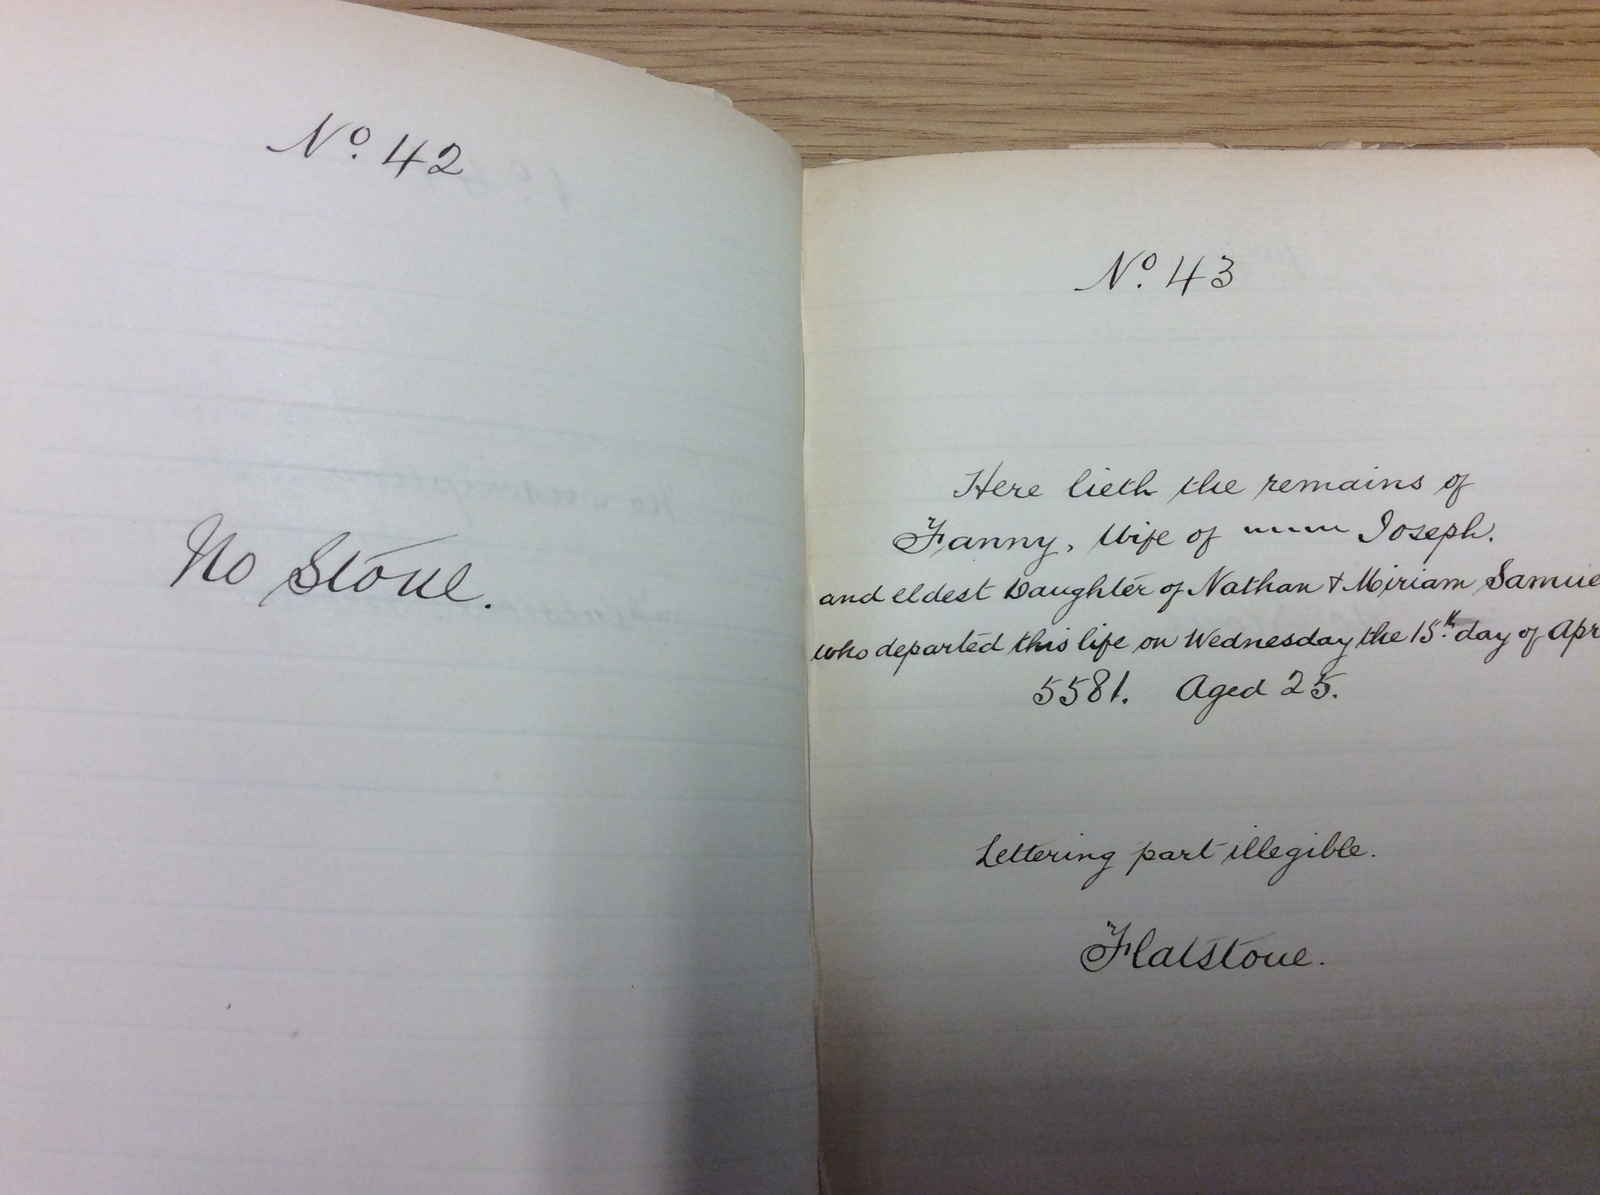 No. 42
No Stone.
No. 43
Here lieth the remains of
Fanny, Wife of Joseph.
and eldest Daughter of Nathan & Miriam Samue
who departed this life on Wednesday the 15th day of Apr
5581. Aged 25.
Lettering part illegible.
Flatstone.